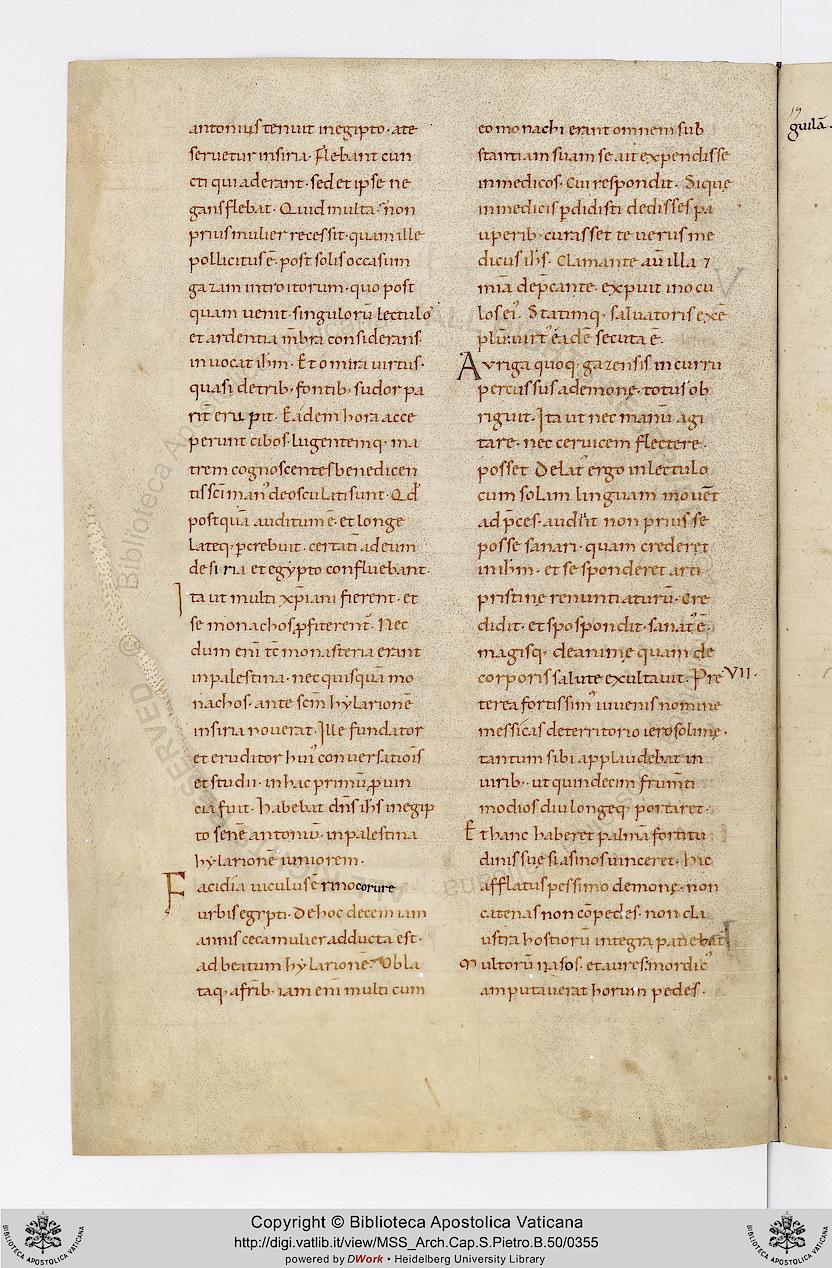 antonius tenuit in egipto · a te
seruetur in siria · Flebant cun
cti qui aderant · sed et ipse ne
gans flebat · Quid multa · non
prius mulier recessit · quam ille
pollicitus ē · post solis occasum
gazam introitorum · quo post
quam uenit · singulorū lectulos
et ardentia mēbra considerans
inuocat ihm̄ · Et o mira uirtus ·
quasi de trib· fontib· sudor pa
rit̄ erupit · Eadem hora acce
perunt cibos · lugentemq· ma
trem cognoscentes benedicen
tis sc̄i man' deosculati sunt · Qđ
postquā auditum ē · et longe
lateq· pcrebuit · certati adeum
de siria et egypto confluebant ·
Ita ut multi xp̄iani fierent · et
se monachos p̄fiterent̄ · Nec
dum eni tc̄ monasteria erant
in palestina · nec quisquā mo
nachos · ante sc̄m hẏlarionē
in siria nouerat · Ille fundator
et eruditor hui' conuersatiōis
et studii · in hac primū p̄uin
cia fuit · Habebat dn̄s ihs̄ in egip
to senē antoniū · in palestina
hẏlarionē iuniorem ·
Facidia uiculus ē rinocorure
urbis egypti · De hoc decem iam
annis ceca mulier adducta est ·
ad beatum hẏlarionē · Obla
taq· a frīb· iam enī multi cum
eo monachi erant omnem sub
stantiam suam se ait expendisse
in medicos · Cui respondit · Si que
in medicis pdidisti dedisses pa
uperib· curasset te uerus me
dicus ihs̄ · Clamante aū illa ⁊
mīa dep̄cante · expuit in ocu
los ei' · Statimq· saluatoris exē
plū · uirt' eadē secuta ē ·
Auriga quoq· gazensis in curru
percussus a demonę · totus ob
riguit · Ita ut nec manū agi
tare · nec ceruicem flectere ·
posset Delat' ergo in lectulo
cum solam linguam mouēt
ad p̄ces · audiit non prius se
posse sanari · quam crederet
in ihm̄ · et se sponderet arti
pristinę renuntiaturū · Cre
didit · et spospondit · sanat' ē ·
magisq· de animę quam de
corporis salute exultauit · Pre
VII ·
terea fortissim' iuuenis nomine
messicas de territorio ierosolimę ·
tantum sibi applaudebat in
uirib· ut quindecim frumti
modios diu longeq· portaret ·
Et hanc haberet palmā fortitu
dinis suę si asinos uinceret · hic
afflatus pessimo demonę · non
catenas non cōpedes · non cla
ustra hostiorū integra patiebat̄
Multorū nasos · et aures mordic'
amputauerat horum pedes ·
guilā ·
Copyright © Biblioteca Apostolica Vaticana
http://digi.vatlib.it/view/MSS_Arch.Cap.S.Pietro.B.50/0355
powered by DWork • Heidelberg University Library
BIBLIOTECA APOSTOLICA VATICANA
BIBLIOTECA APOSTOLICA VATICANA